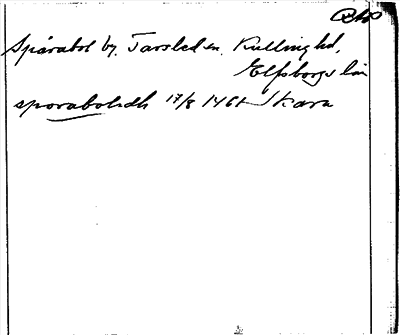 Spårabol by. Tarsled sn. Kulling hd,
Elfsborgs län
sporabohult 17/8 1461 Skara